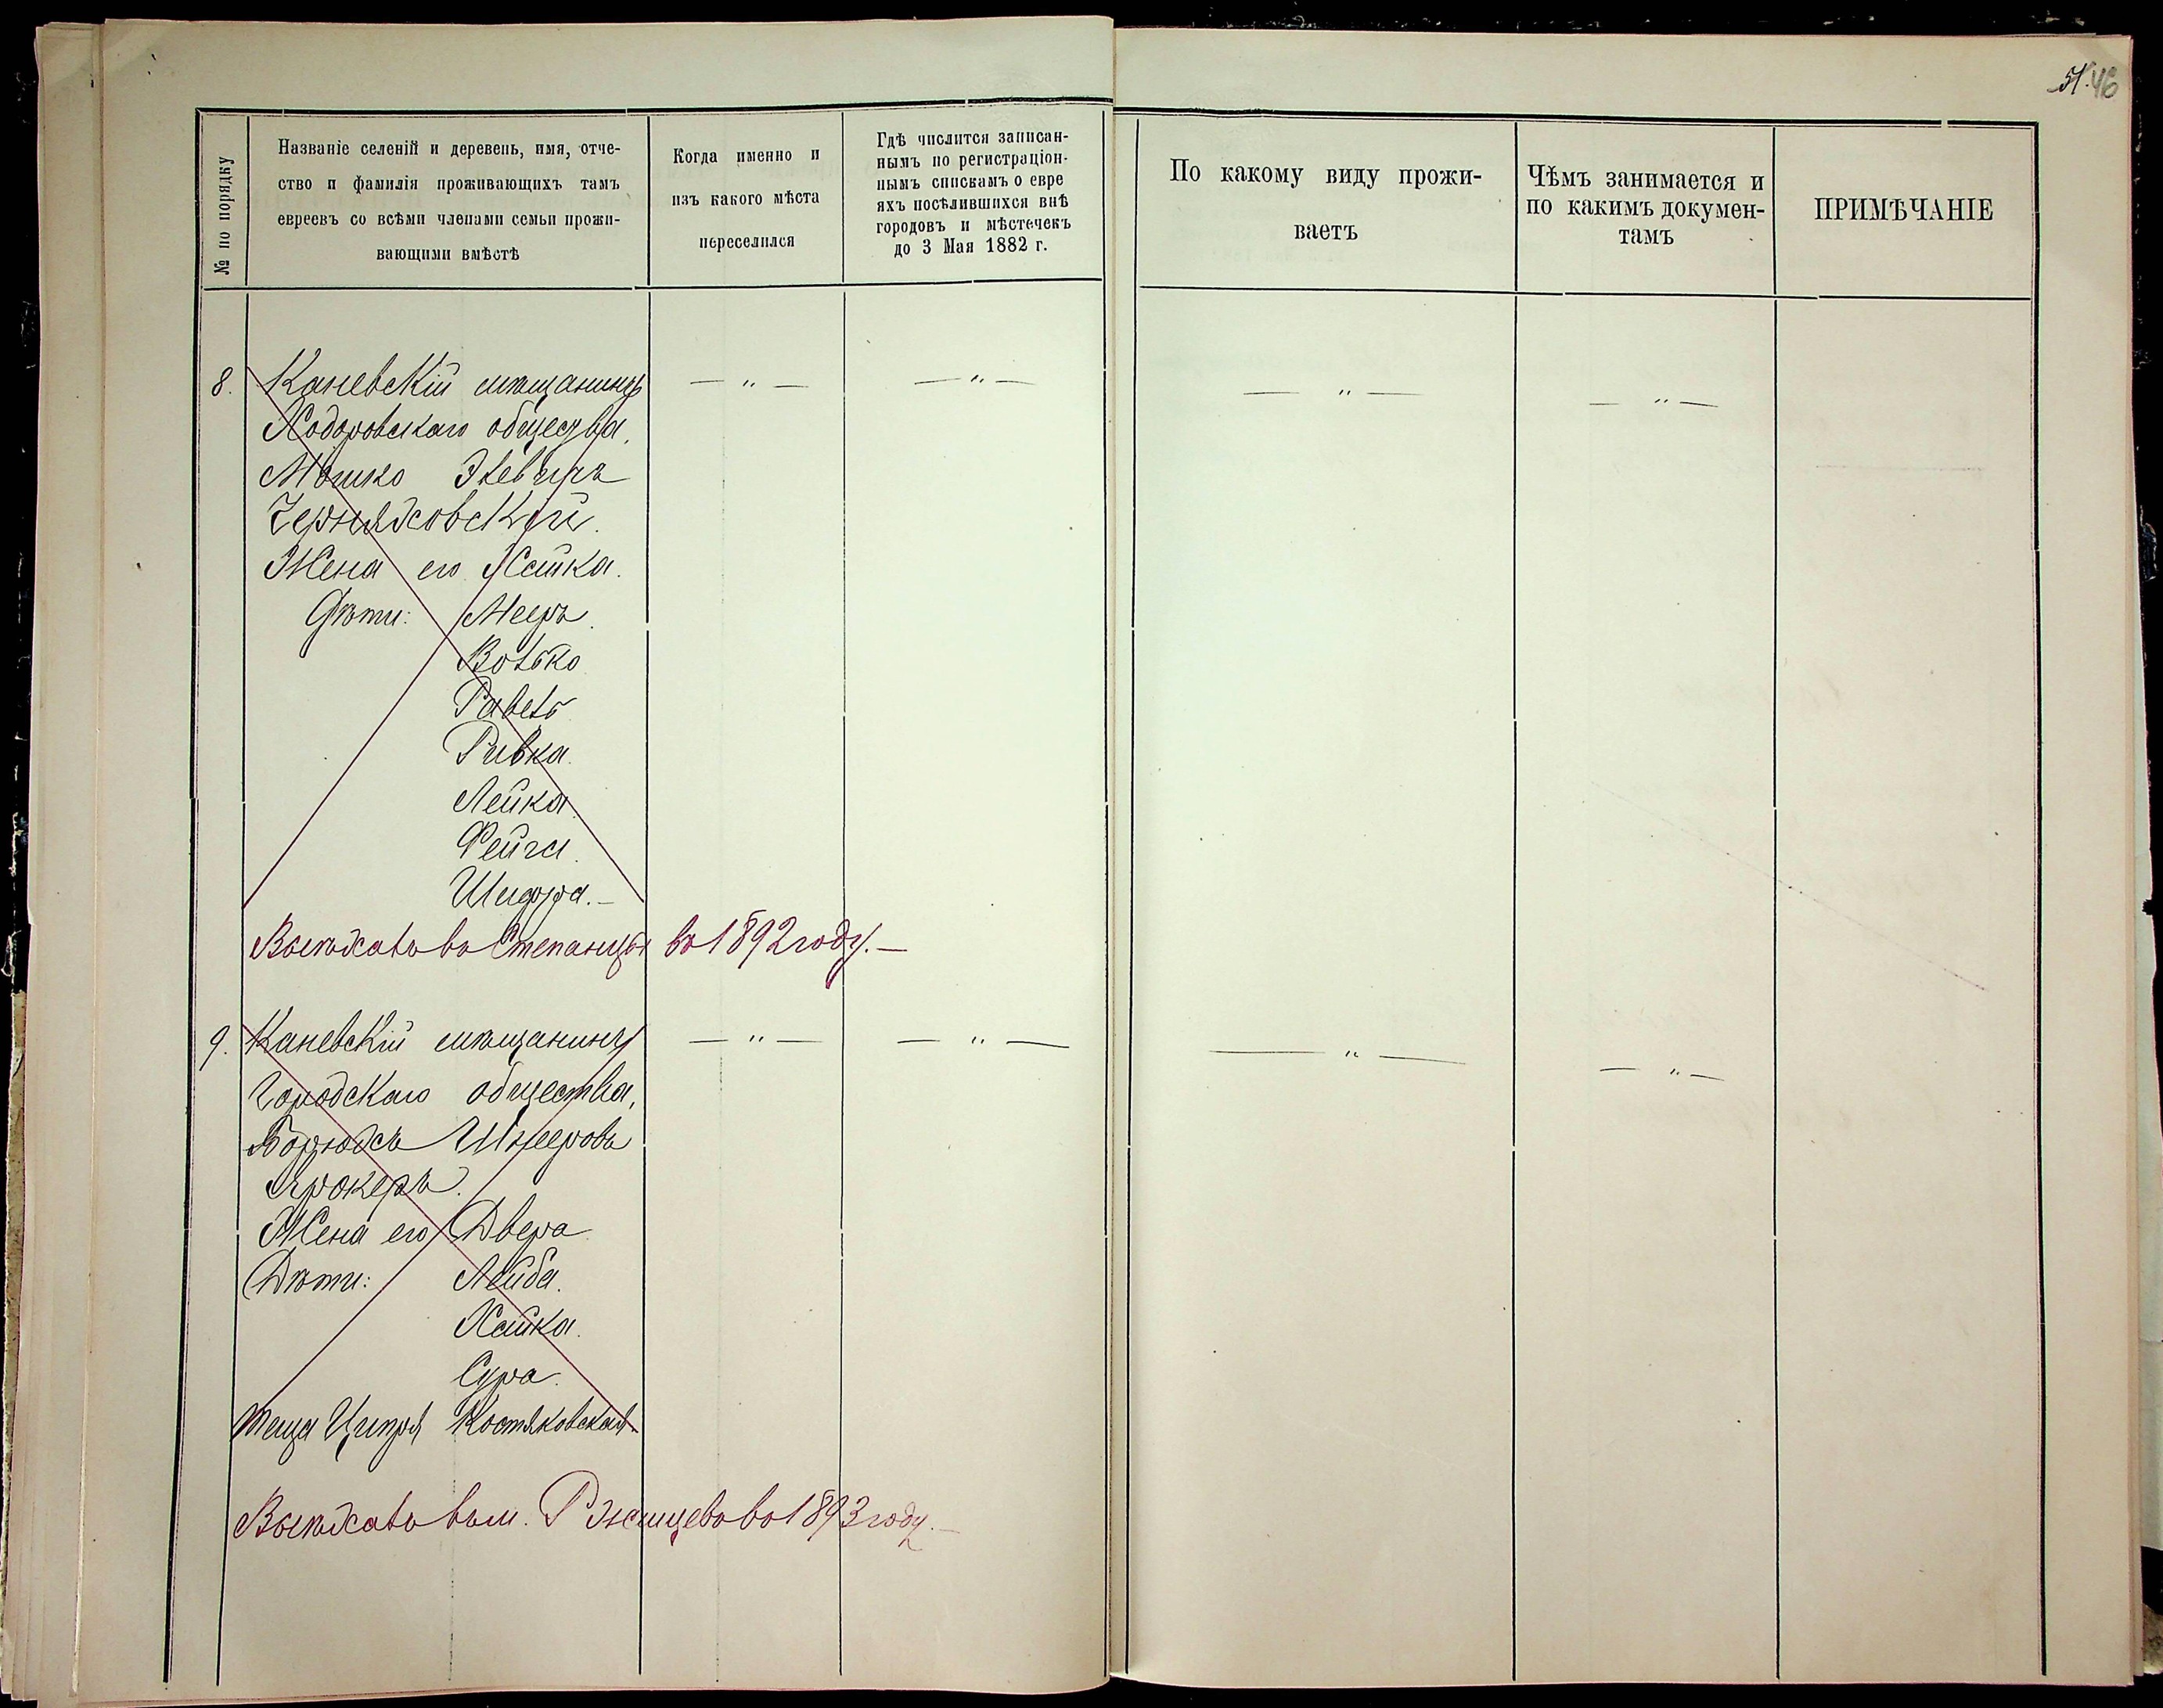 51. 46
№ по порядку
Названіе селеній и деревень, имя, отче-
ство и фамилія проживающихъ тамъ
евреевъ со всѣми членами семьи прожи-
вающими вмѣстѣ
Когда именно и
изъ какого мѣста
переселился
Гдѣ числится записан-
нымъ по регистраціон-
нымъ спискамъ о евре
яхъ поселившихся внѣ
городовъ и мѣстечекъ
до 3 Мая 1882 г.
По какому виду прожи-
ваетъ
Чѣмъ занимается и
по какимъ докумен-
тамъ
ПРИМѢЧАНІЕ
8. Каневскій мѣщанинъ — „ — — „ — — „ — — „ —
Ходоровскаго общества,
Мошко
Черняховскій.
Жена его Хайка.
Дѣти: Мееръ.
Волько
Равель
Ривка.
Лейка.
Фейга.
Шифра.—
Выѣхалъ въ Степанцы въ 1892 году.—
9. Каневскій мѣщанинъ — „ — — „ — — „ — — „ —
городскаго общества,
Шнееровъ
Жена его Двера
Дѣти: Лейба.
Хайка.
Сура.
теща Ципря Костяковская
Выѣхалъ въ м. Ржищевъ въ 1893 году.—